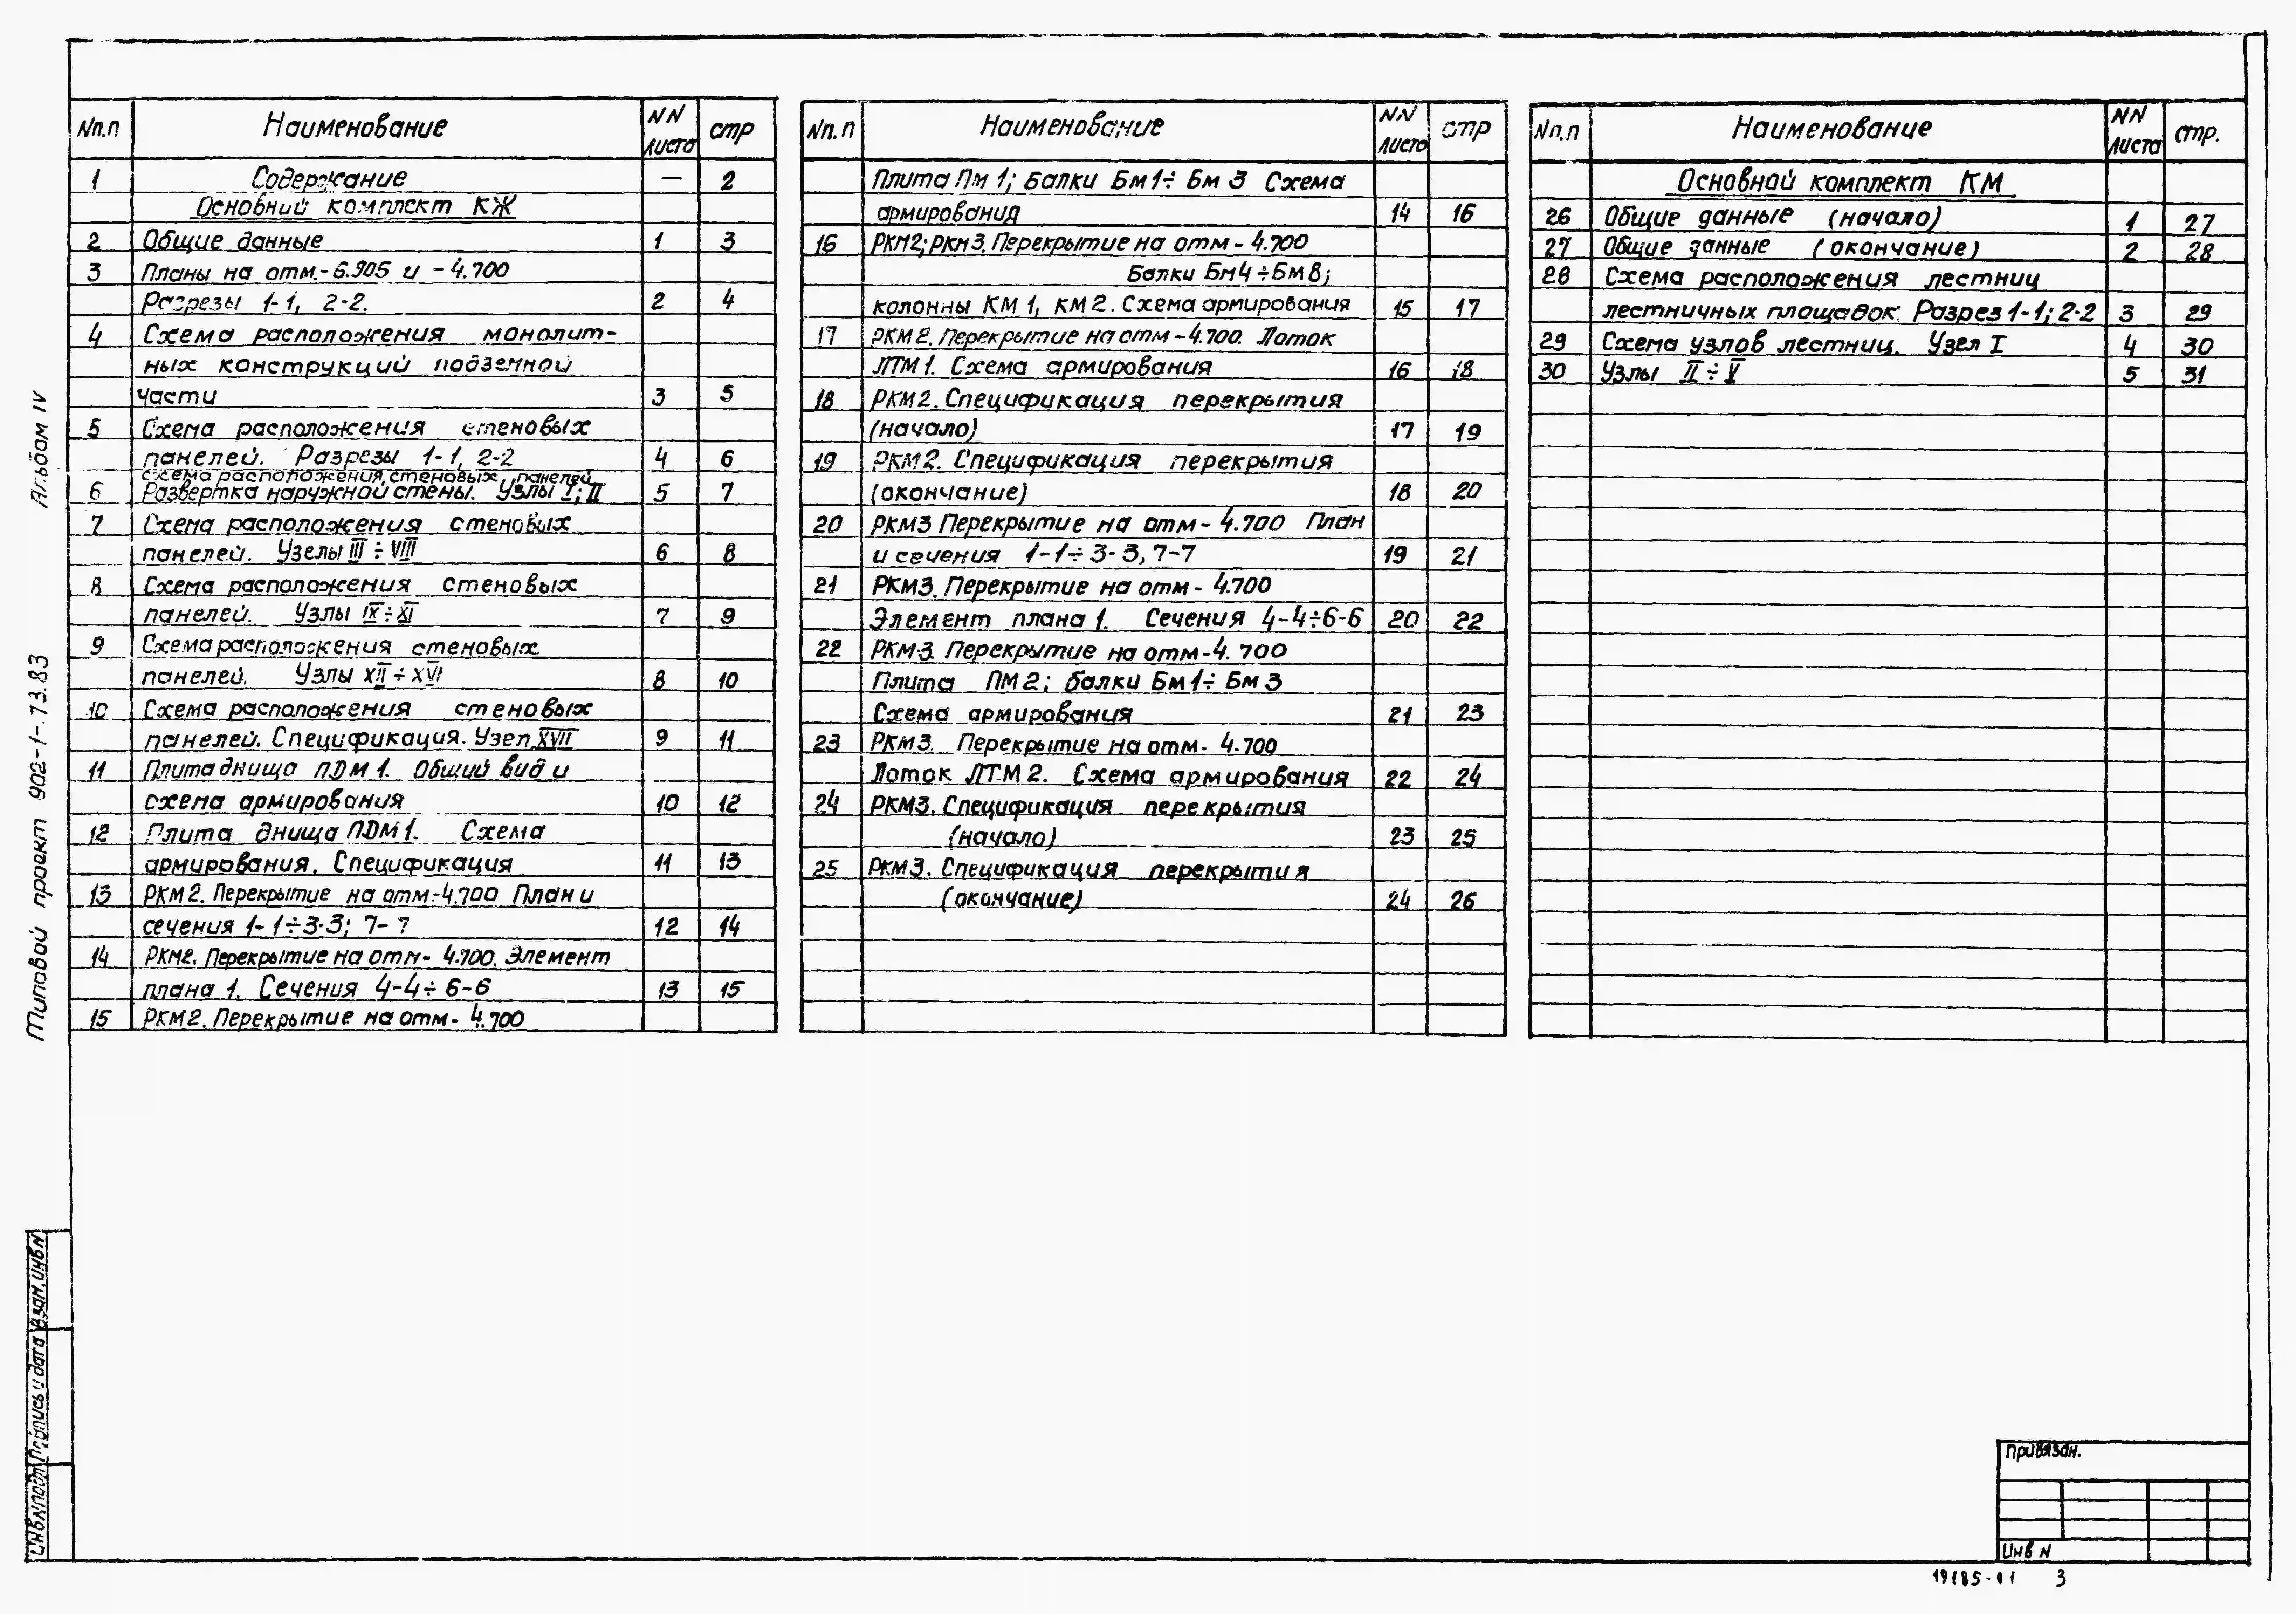 Nп.п Наименование NN листа стр
1 Содержание — 2
Основний комплект КЖ
2 Общие данные 1 3
3 Планы на отм.-6.905 и -4.700
Разрезы 1-1, 2-2. 2 4
4 Схема расположения монолит-
ных конструкций подземной
части 3 5
5 Схема расположения стеновых
панелей. Разрезы 1-1, 2-2 4 6
схема расположения, стеновых панелей
6 Развертка наружной стены. Узлы I; II 5 7
7 Схема расположения стеновых
панелей. Узелы III ÷ VIII 6 8
8 Схема расположения стеновых
панелей. Узлы IX ÷ XI 7 9
9 Схема расположения стеновых
панелей. Узлы XII ÷ XVI 8 10
10 Схема расположения стеновых
панелей. Спецификация. Узел XVII 9 11
11 Плита днища ПДМ 1. Общий вид и
схема армирования 10 12
12 Плита днища ПДМ 1. Схема
армирования. Спецификация 11 13
13 РКМ2. Перекрытие на отм-4.700 План и
сечения 1-1÷3-3; 7-7 12 14
14 РКМ2. Перекрытие на отм- 4.700. Элемент
плана 1. Сечения 4-4÷6-6 13 15
15 РКМ2. Перекрытие на отм- 4.700
Nп.п Наименование NN листа стр
Плита Пм 1; балки Бм1÷ Бм 3 Схема
армирования 14 16
16 РКМ2; РКМ3. Перекрытие на отм - 4.700
Балки Бм4÷Бм8;
колонны КМ 1, КМ2. Схема армирования 15 17
17 РКМ2. Перекрытие на отм -4.700. Лоток
ЛТМ 1. Схема армирования 16 18
18 РКМ2. Спецификация перекрытия
(начало) 17 19
19 РКМ2. Спецификация перекрытия
(окончание) 18 20
20 РКМ3 Перекрытие на отм- 4.700 План
и сечения 1-1÷3-3, 7-7 19 21
21 РКМ3. Перекрытие на отм - 4.700
Элемент плана 1. Сечения 4-4÷6-6 20 22
22 РКМ3. Перекрытие на отм-4.700
Плита ПМ2; балки Бм1÷ Бм 3
Схема армирования 21 23
23 РКМ3. Перекрытие на отм- 4.700
Лоток ЛТМ2. Схема армирования 22 24
24 РКМ3. Спецификация перекрытия
(начало) 23 25
25 РКМ3. Спецификация перекрытия
(окончание) 24 26
Nп.п Наименование NN листа стр.
Основной комплект КМ
26 Общие данные (начало) 1 27
27 Общие данные (окончание) 2 28
28 Схема расположения лестниц
лестничных площадок. Разрез 1-1; 2-2 3 29
29 Схема узлов лестниц. Узел I 4 30
30 Узлы II ÷ V 5 31
Альбом IV
Типовой проект 902-1-73.83
Взам.инвN
Подпись и дата
ИнвNподл
Привязан.
Инв N
19185-01 3